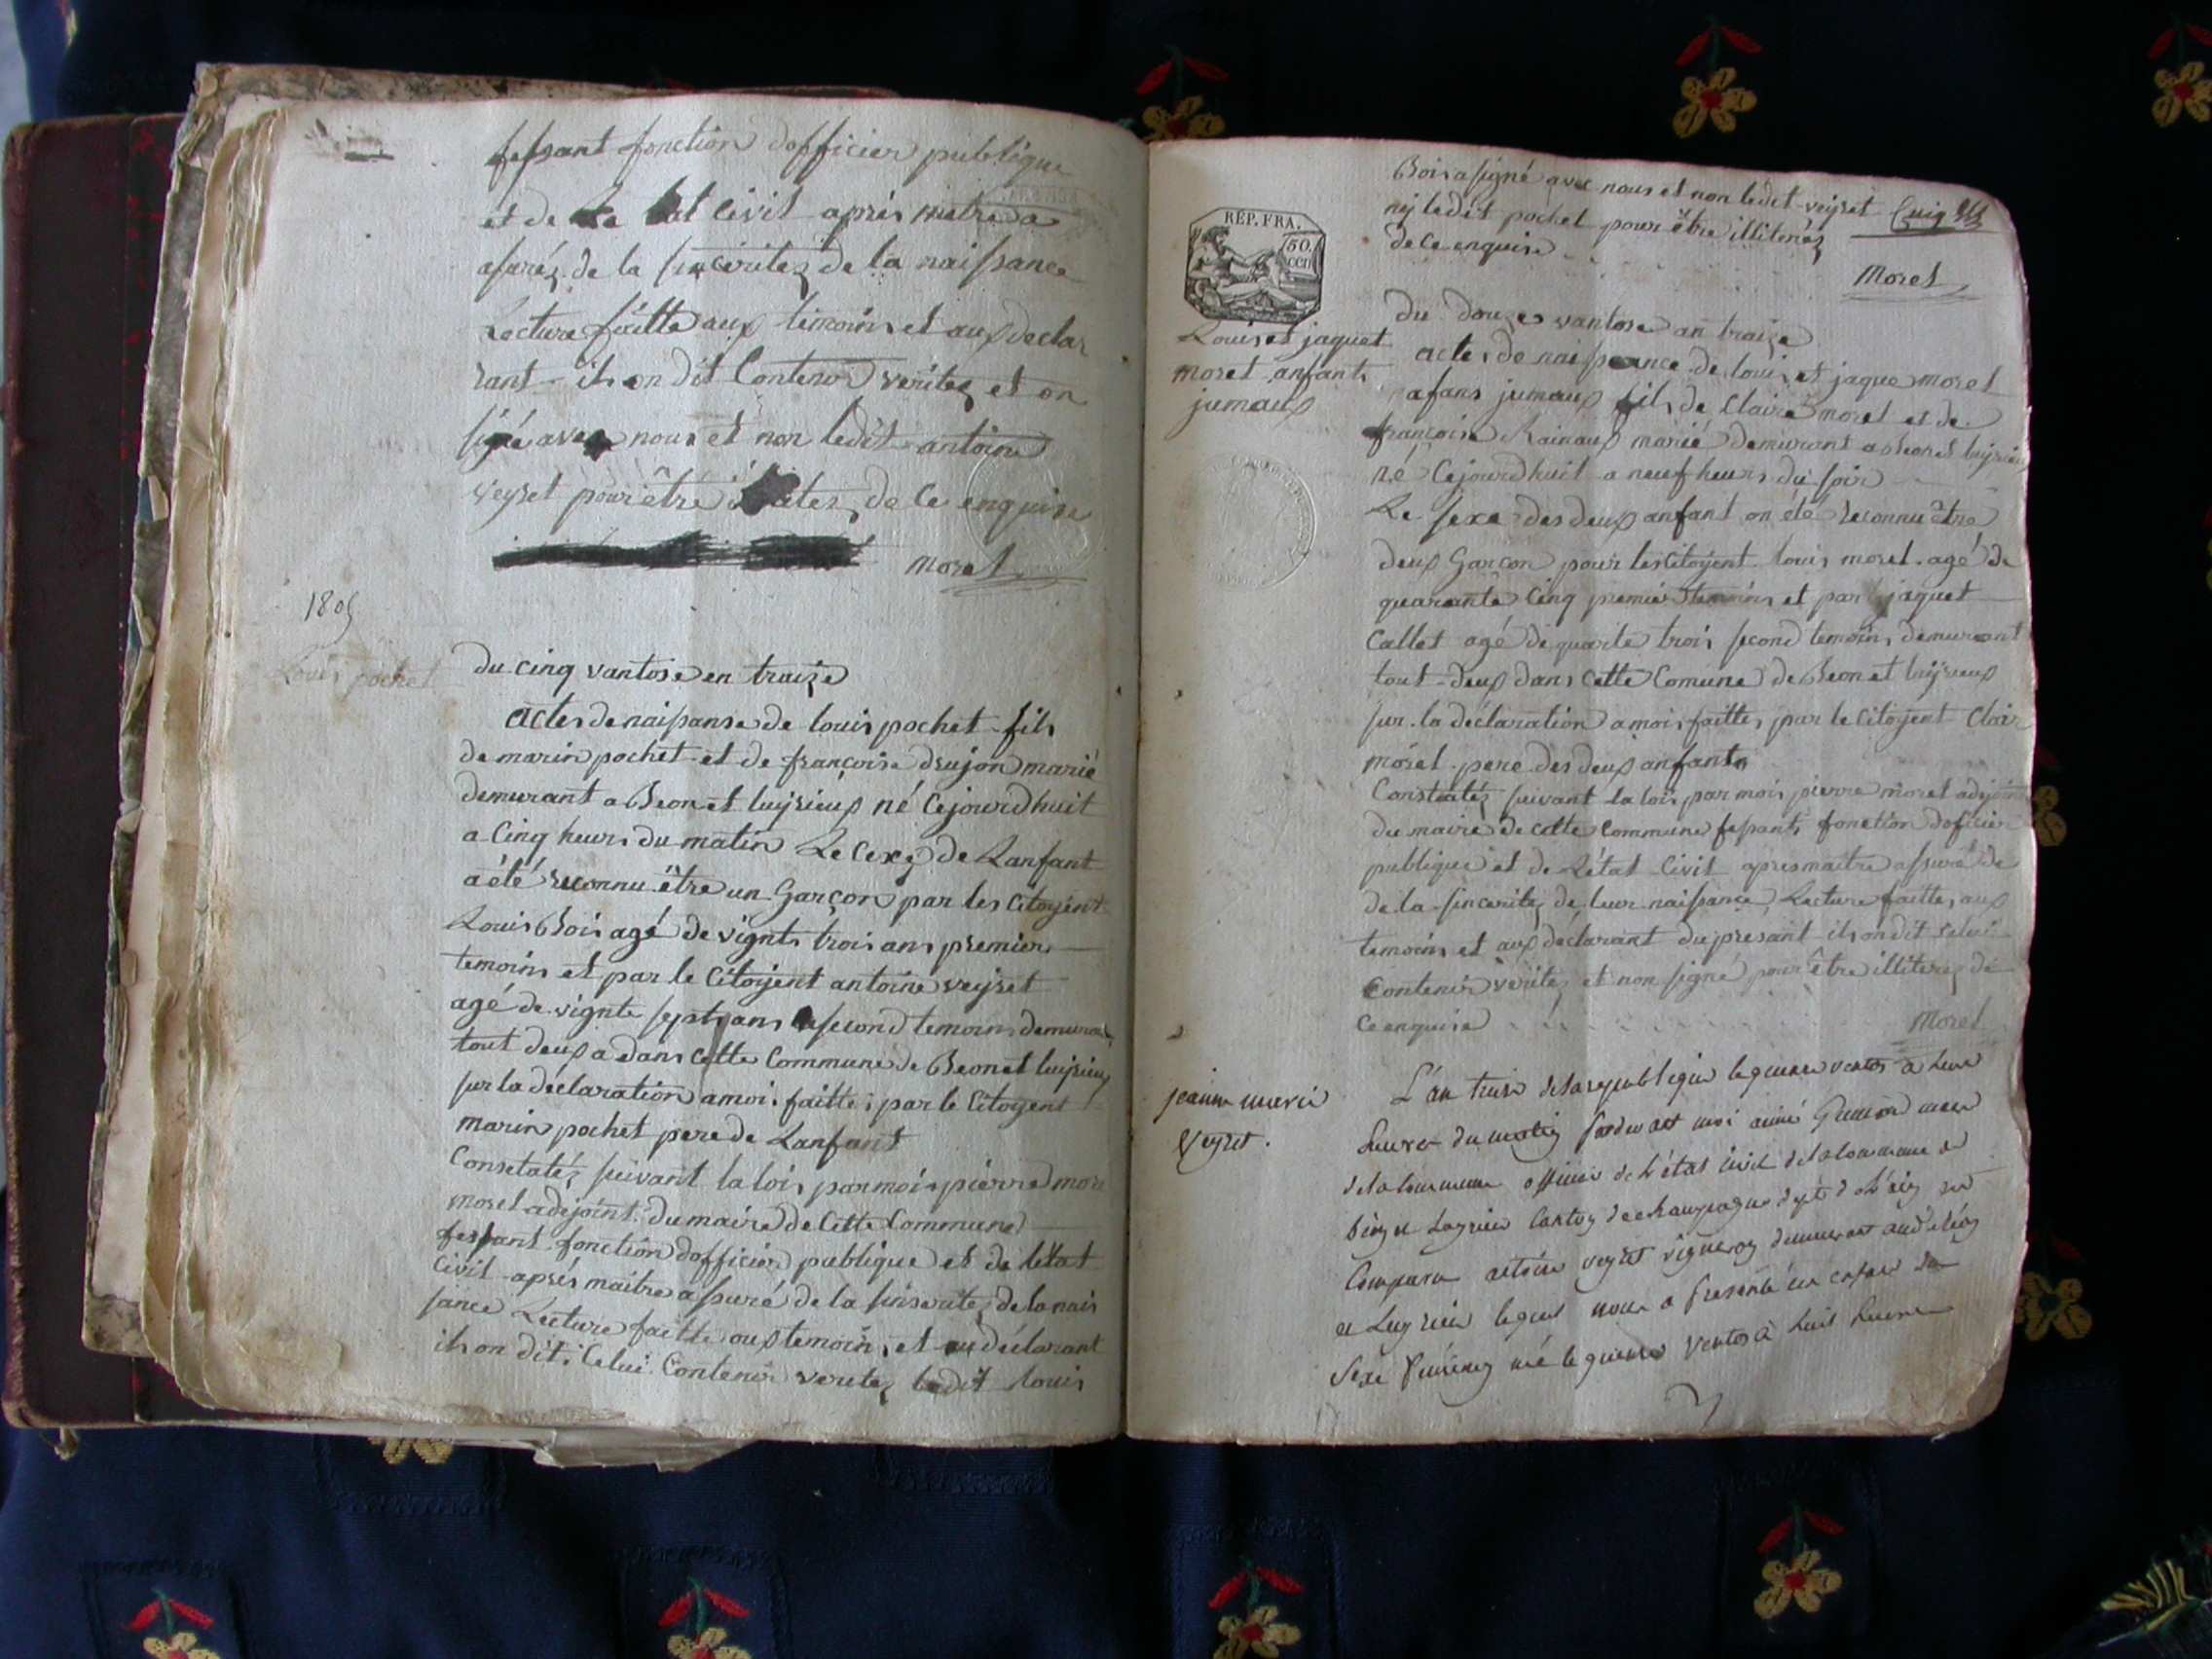 fessant fonction dofficier publique
et de civil aprés matre a
asuréz de la sincéritez de la naissance
Lecture faitte aux temoins et aux declar
rant ils on dit Contenir veritez et on
signé avec nous et non ledit antoine
veyret pour être de ce enquise
Morel
1805
Louis pochet
du cinq vantose en traize
actes de naissanse de louis pochet fils
de marin pochet et de françoise drujon marié
demurant a Beon et luyrieux né Cejourdhuit
a Cinq heurs du matin Le cexe de Lanfant
a été reconnu être un Garçon par les citoyent
Louis Bois agé de vignts trois ans premier
temoins et par le Citoyent antoine veyret
agé de vignte septs ans second temoins demurant
tout deux a dans cette Commune de Beon et luyrieux
sur la déclaration a moi faitte par le Citoyent
marin pochet pere de Lanfant
Constatéz suivant la lois par mois pierre more
morel adejoint du maire de Cette Commune
fessant fonction dofficier publique et de létat
Civil aprés maitre assuré de la sinseritez de la nais
sance Lecture faitte aux temoins et au déclarant
ils on dit Celui Contenir veritez ledit louis
Bois a signé avec nous et non ledit veyret
nij ledit pochet pour être illiteréz
de Ce enquise
Morel
RÉP. FRA.
50.
CEN
Louis et jaquet
moret anfants
jumaux
du douze vantose an traize
actes de naissance de louis et jaque morel
afans jumaux fils de Claire morel et de
françoise Rainaux marié demurant a Beon et luyrieu
né Cejourdhuit a neuf heurs du soir
Le sexe des deux anfant on été reconnu être
deux Garcon pour les Citoyent louis morel agé de
quarante Cinq premier temoins et par jaquet
Callet agé de quarte trois second temoins demurant
tout deux dans Cette Comune de Beon et luyrieux
sur la déclaration a mois faittes par le Citoyent Clair
morel pere des deux anfants
Constatéz suivant la lois par mois pierre morel adejoin
du maire de cette Commune fessants fonction doficier
publique et de Létat Civil apres maitre assuré de
de la sinceritez de leur naissance Lecture faittes aux
temoins et aux déclarant du presant ils on dit celui
Contenir veritez et non signé pour être illiterez de
Ce enquise
Morel
jeanne marie
Veyret.
L'an treize de la republique le quinze ventos a heure
du matin pardevant moi aimé maire
de la Commune officier de l'état civil de la Commune de
Béon et Luyrieu Canton de champagne dept de L'ain est
Comparu antoine veyret vigneron demeurant audit béon
et Luyrieu lequel nous a presenté un enfant du
Sexe né le quinze ventos à huit heure